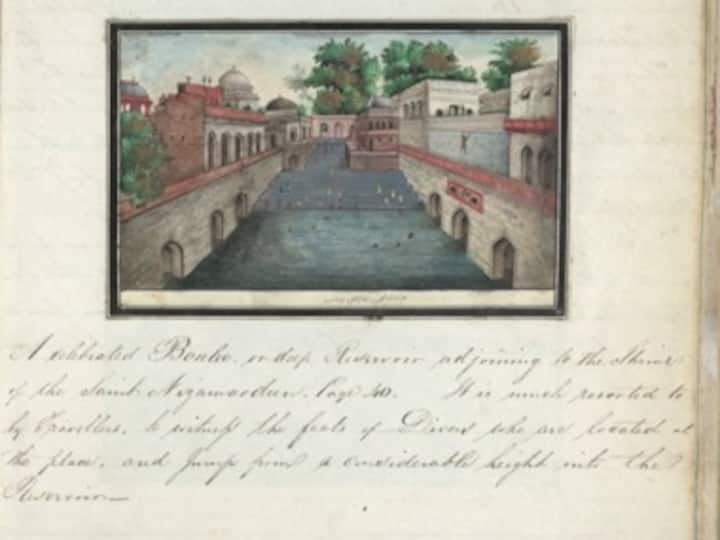 A celebrated Boulee, or deep Reservoir adjoining to the Shrine
of the Saint Nizamooddeen. Page 40. It is much resorted to
by Travellers, to witness the feats of Divers who are located at
the place, and jump from a considerable height into the
Reservoir